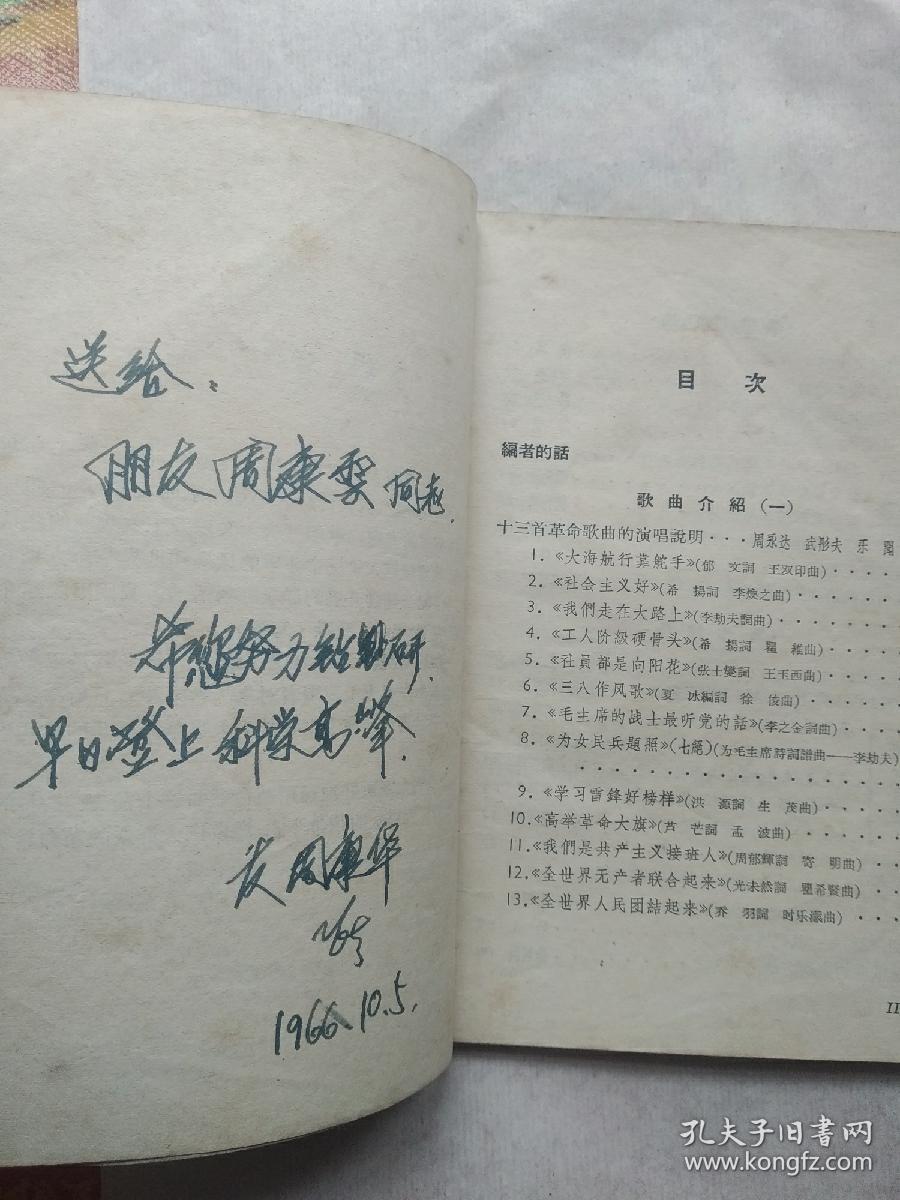 送给：
朋友周康雲同志.
希您努力钻研.
早日登上科学高峰.
友周康华
1966.10.5.
目 次
編者的話
歌曲介紹(一)
十三首革命歌曲的演唱說明···周永达 武彤夫 乐
1.《大海航行靠舵手》(郁 文詞 王双印曲)·····
2.《社会主义好》(希 揚詞 李煥之曲)······
3.《我們走在大路上》(李劫夫詞曲)·······
4.《工人阶級硬骨头》(希 揚詞 瞿 維曲)·····
5.《社員都是向阳花》(张士燮詞 王玉西曲)·····
6.《三八作风歌》(夏 冰編詞 徐 俊曲)·····
7.《毛主席的战士最听党的話》(李之金詞曲)····
8.《为女民兵題照》(七絕)(为毛主席詩詞譜曲——李劫夫)
··················
9.《学习雷鋒好榜样》(洪 源詞 生 茂曲)·····
10.《高举革命大旗》(芦 芒詞 孟 波曲)······
11.《我們是共产主义接班人》(周郁輝詞 寄 明曲)···
12.《全世界无产者联合起来》(光未然詞 瞿希賢曲)···
13.《全世界人民团結起来》(乔 羽詞 时乐濛曲)····
II
孔夫子旧书网
www.kongfz.com